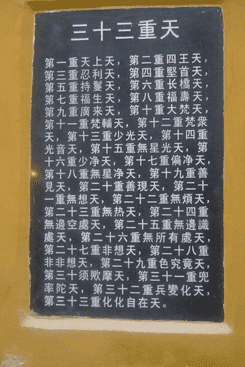 三十三重天
第一重天上天，第二重四王天，
第三重忍利天，第四重堅首天，
第五重持鬘天，第六重长橋天，
第七重福生天，第八重福壽天，
第九重廣来天，第十重大梵天，
第十一重梵輔天，第十二重梵衆
天，第十三重少光天，第十四重
光音天，第十五重無星光天，第
十六重少净天，第十七重偏净天，
第十八重無星净天，第十九重善
見天，第二十重善現天，第二十
一重無想天，第二十二重無煩天，
第二十三重無热天，第二十四重
無邊空處天，第二十五重無邊識
處天，第二十六重無所有處天，
第二十七重非想天，第二十八重
非非想天，第二十九重色究竟天，
第三十须欺摩天，第三十一重兜
率陀天，第三十二重兵變化天，
第三十三重化化自在天。